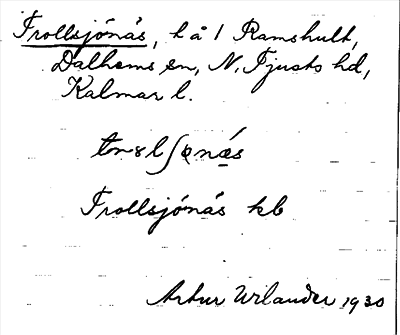 Trollsjönäs, l å 1 Ramshult,
Dalhems sn, N. Tjusts hd,
Kalmar l.
Trollsjönäs kb
Artur Wilander 1930